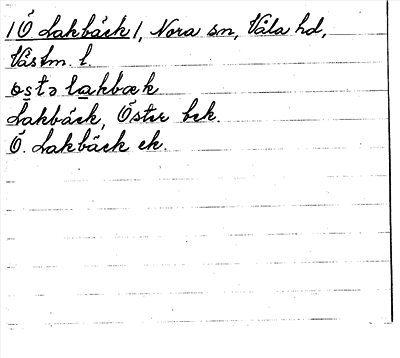 /Ö Lakbäck/, Nora sn, Våla hd,
Västm. l.
østə lakbæk
Lakbäck, Öster bek.
Ö. Lakbäck ek.